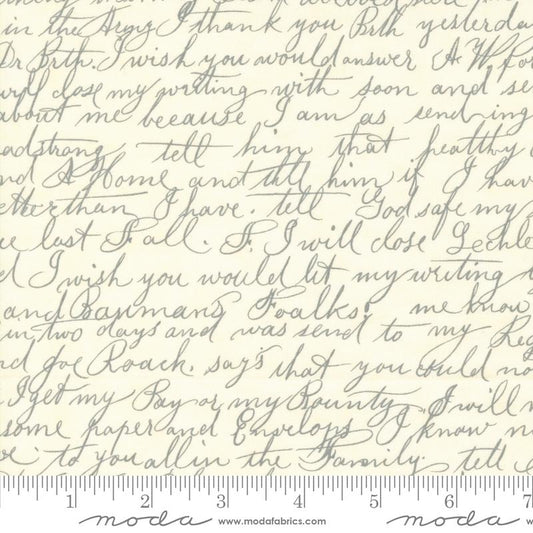 in the Army I thank you Brth yesterda
Dr Brth. I wish you would answer A W, for
will close my writing with soon and se
about me because I am as sending
adstrong, tell him that pealthy
nd A Home and till him if I hav
etter than I have. tell God safe my
ce last Fall. F. I will close Lechle
d I wish you would lit my writing
and Baumans Foalks. me know
in two days and was send to my Reg
nd Joe Roach. say's that you could no
I get my Pay or my Bounty, I will
some paper and Envelops I know n
ve to you all in the Family. tell
1 2 3 4 5 6 7
moda www.modafabrics.com moda